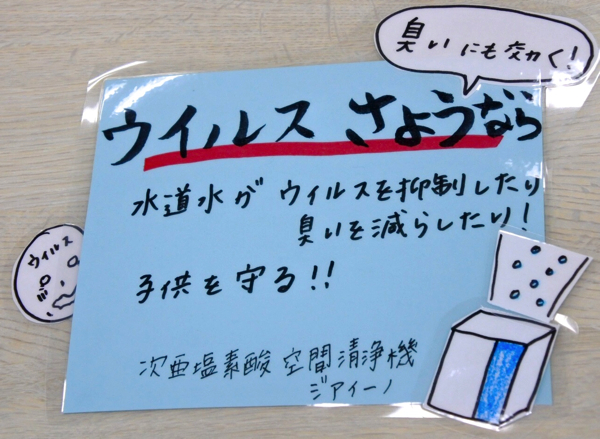 臭いにも効く!
ウイルス さようなら
水道水が ウイルスを抑制したり
臭いを減らしたり!
ウイルス
子供を守る!!
次亜塩素酸 空間清浄機
ジアイーノ